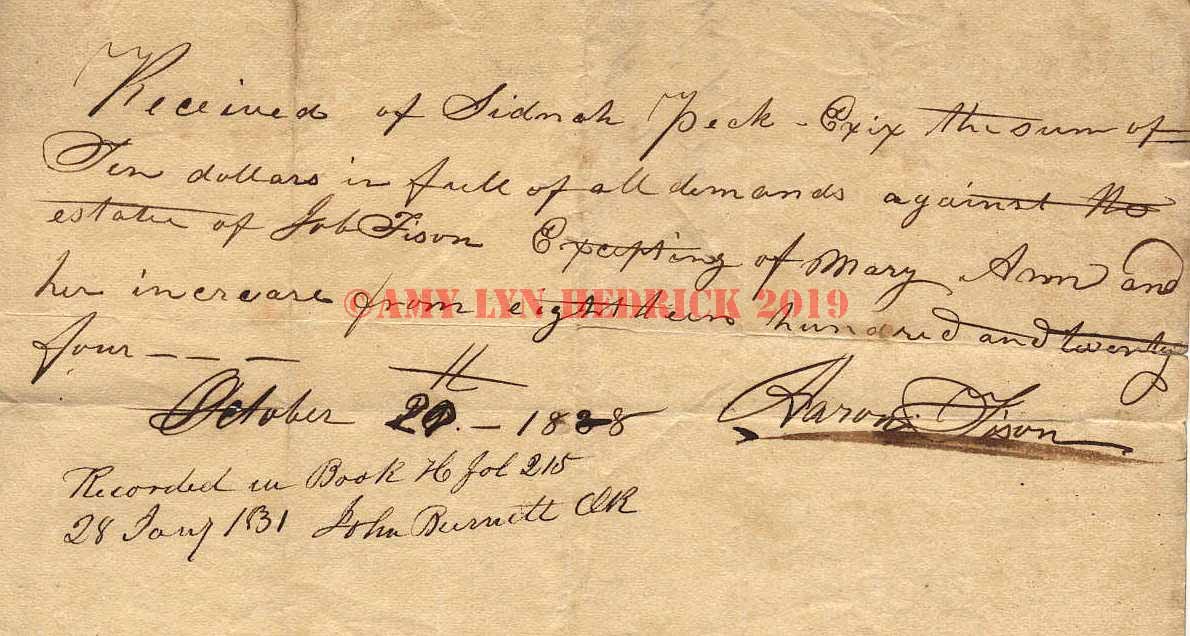 Received of Sidnah Peck - Exix the sum of
Ten dollars in full of all demands against the
estate of Job Tison Excepting of Mary Ann and
her increase from eighteen hundred and twenty
four — — —
October 20th. – 1828
Aaron Tison
Recorded in Book H fol 215
28 Jany 1831 John Burnett CCR
©AMY LYN HEDRICK 2019